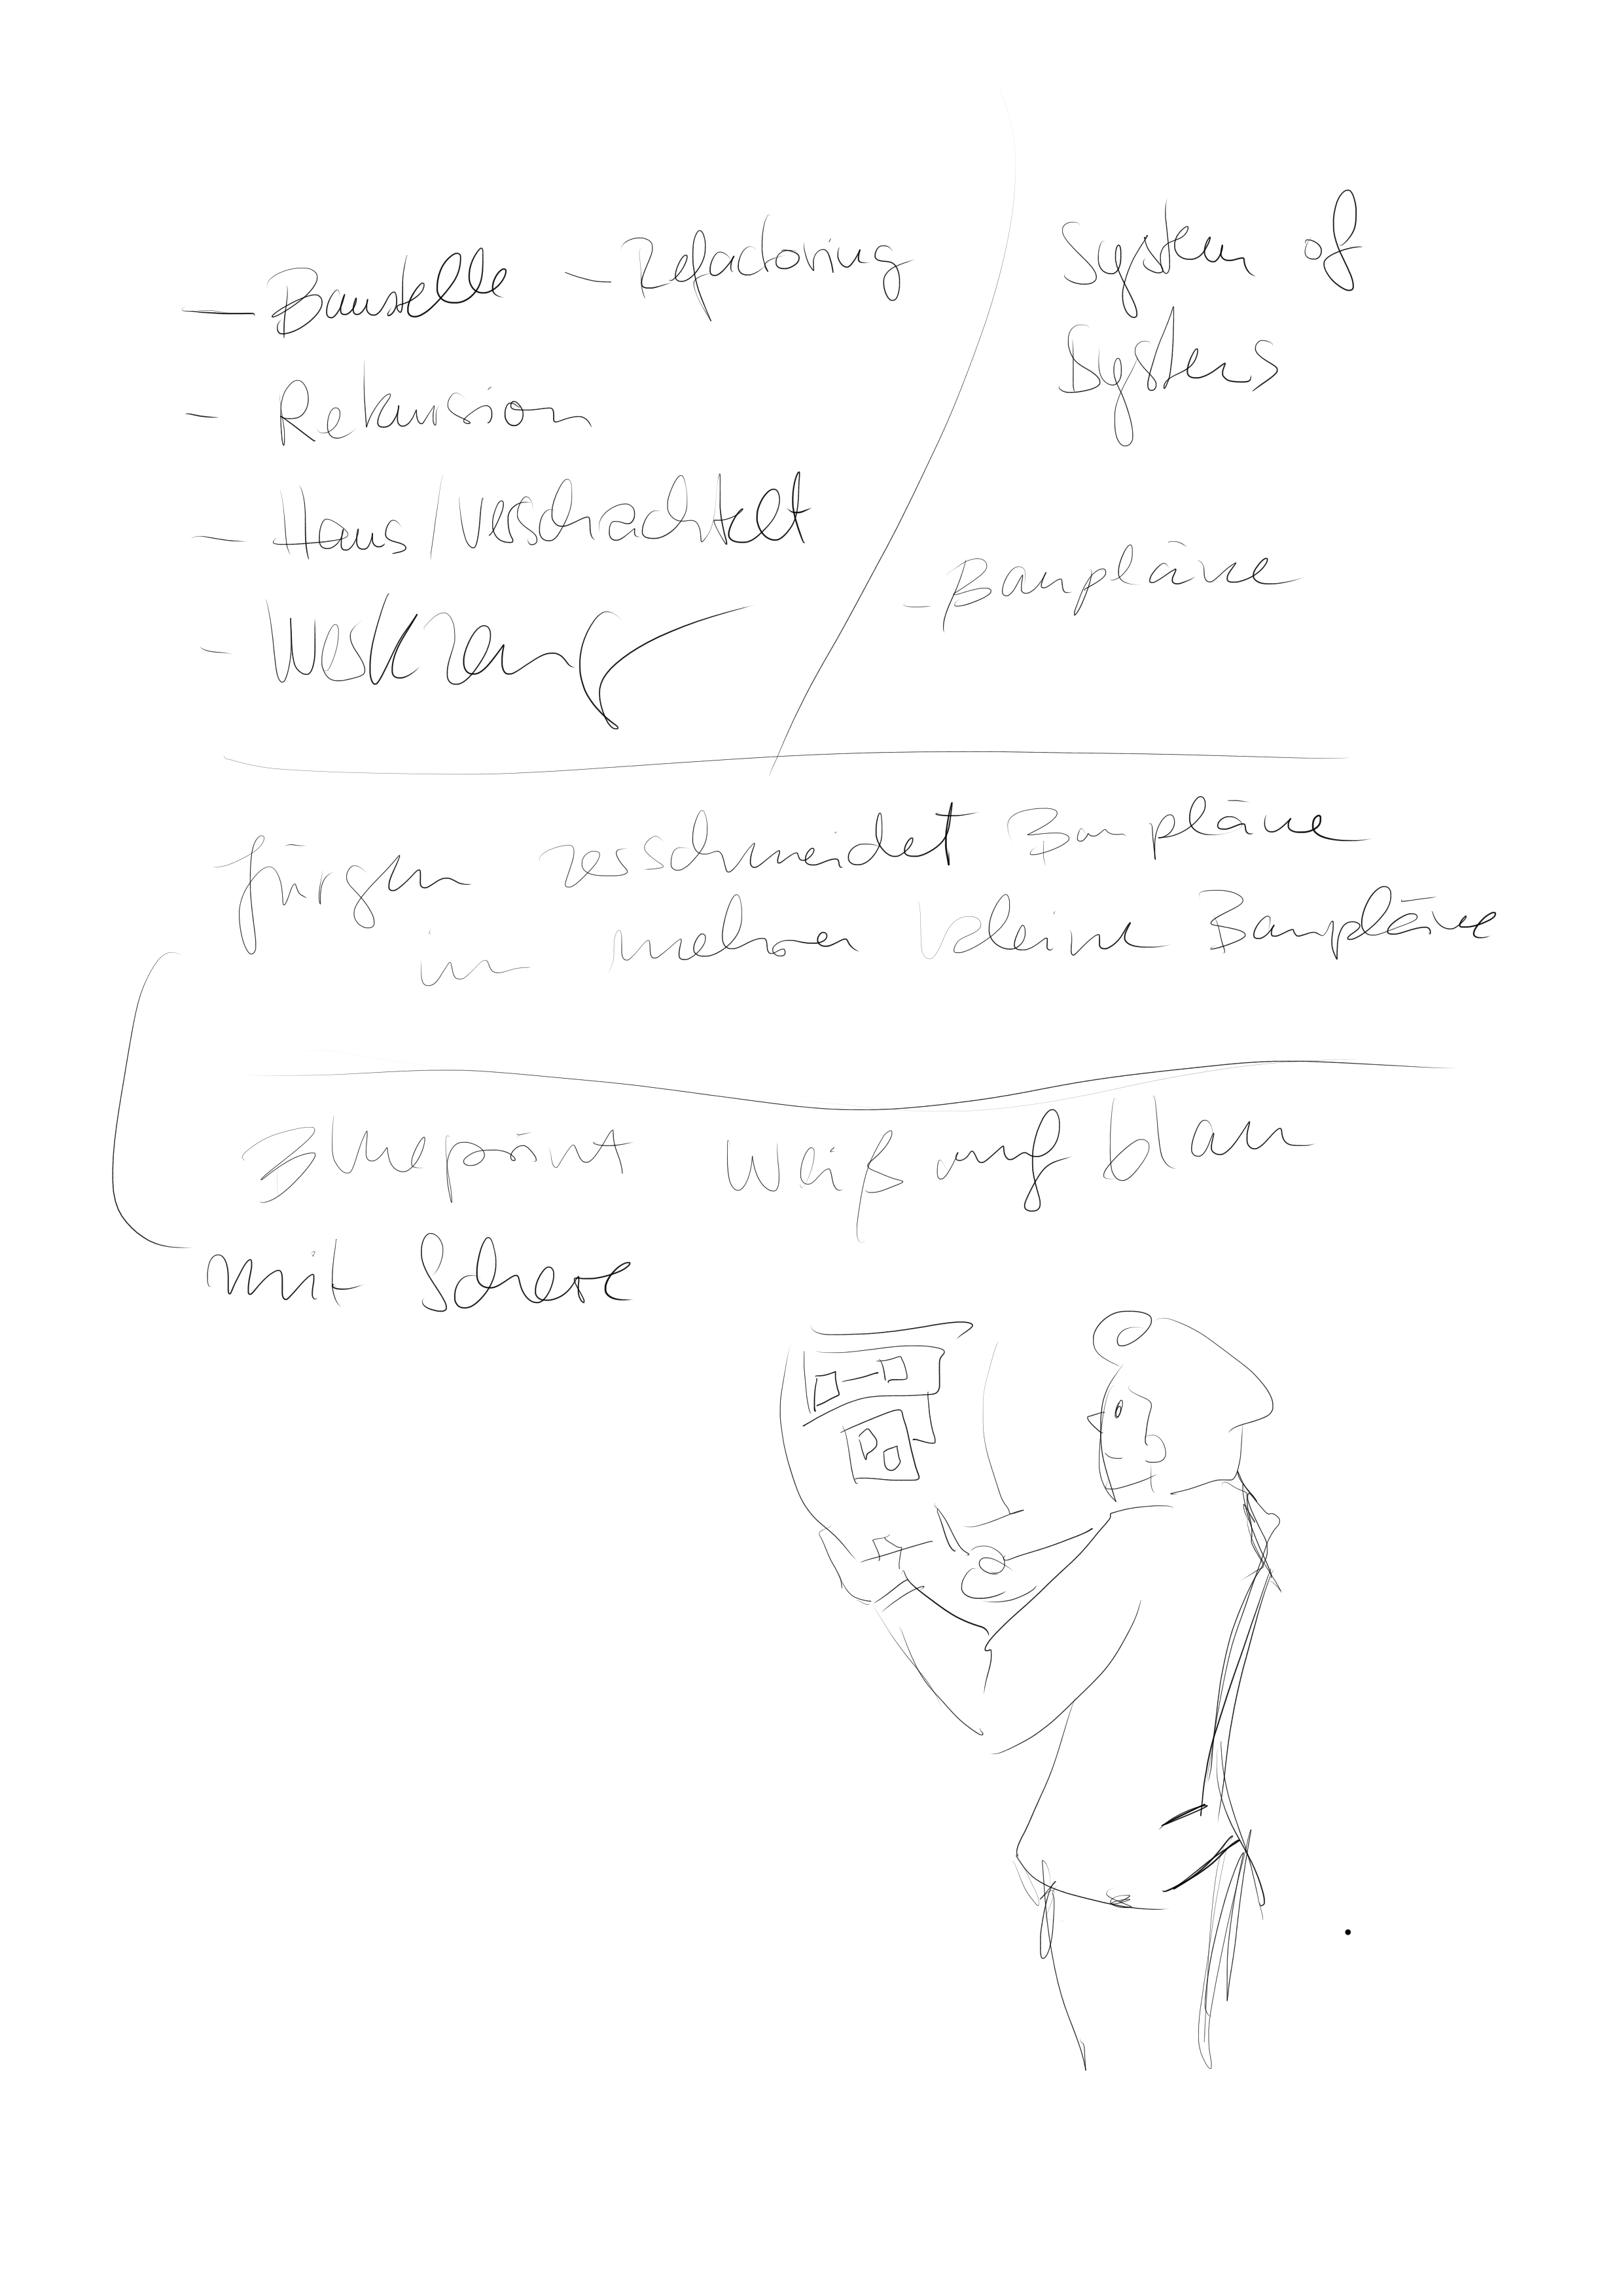 - Baustelle - Refactoring
- Rekursion
- Haus / verschachtelt
- Werkzeug
System of
Systems
- Baupläne
Jürgen zerschneidet Baupläne
in mehrer kleine Baupläne
Blueprint weiß auf blau
mit Schere